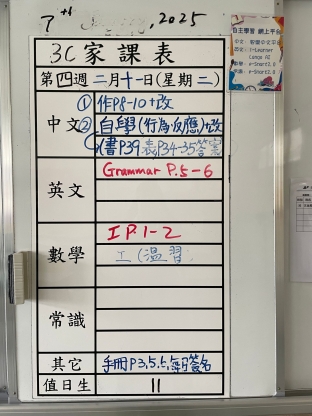 7th
, 2025
自主學習 網上平台
3C 家課表
第四週 二月十一日(星期二)
中文
① 作P8-10+改
② 自學(行為·反應)+改
書P39 表P34-35答案
英文
Grammar P.5-6
數學
IP.1-2
工(溫習)
常識
其它
手冊P3,5
簽名
值日生
11